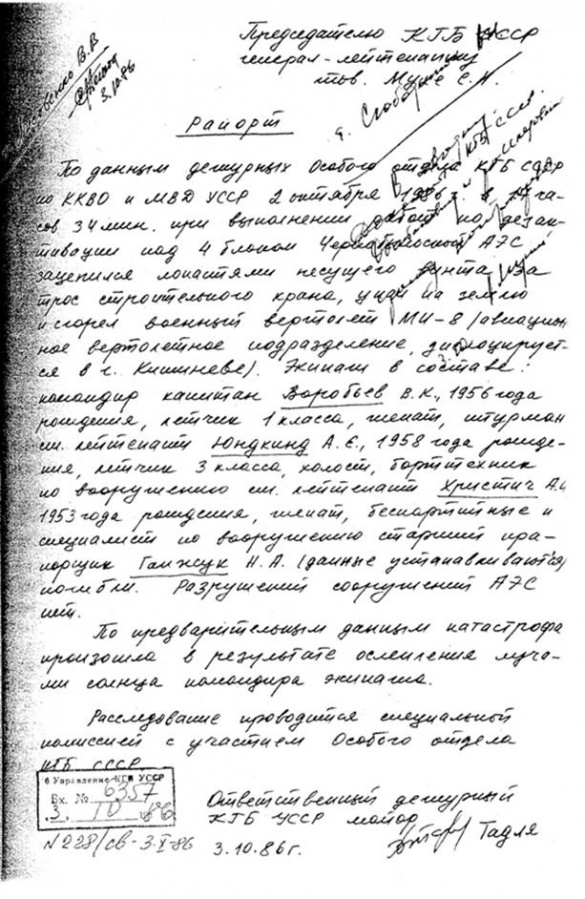 3.10.86
Председателю КГБ УССР
генерал-лейтенанту
тов. Мухе С.Н.
Рапорт
По данным дежурных Особого отдела КГБ СССР
по ККВО и МВД УССР 2 октября 1986 г. в
сов 34 мин. при выполнении работ по дезак-
тивации над 4 блоком Чернобыльской АЭС
зацепился лопастями несущего винта за
трос строительного крана, упал на землю
и сгорел военный вертолет МИ-8 /авиацион-
ное вертолетное подразделение, дислоцирует-
ся в г. Кишиневе). Экипаж в составе:
командир капитан Воробьев В.К., 1956 года
рождения, летчик 1 класса, женат, штурман
ст. лейтенант Юндкинд А.Е., 1958 года рожде-
ния, летчик 3 класса, холост, борттехник
по вооружению ст. лейтенант Христич А.
1953 года рождения, женат, беспартийные и
специалист по вооружению старший пра-
порщик Ганжук Н.А. (данные устанавливаются)
погибли. Разрушений сооружений АЭС
нет.
По предварительным данным катастрофа
произошла в результате ослепления луча-
ми солнца командира экипажа.
Расследование проводится специальной
комиссией с участием Особого отдела
КГБ СССР.
6 Управление КГБ УССР
Вх. № 6357
3. 10 1986
N 228/св-3.X-86
Ответственный дежурный
КГБ УССР майор
Тадля
3.10.86г.